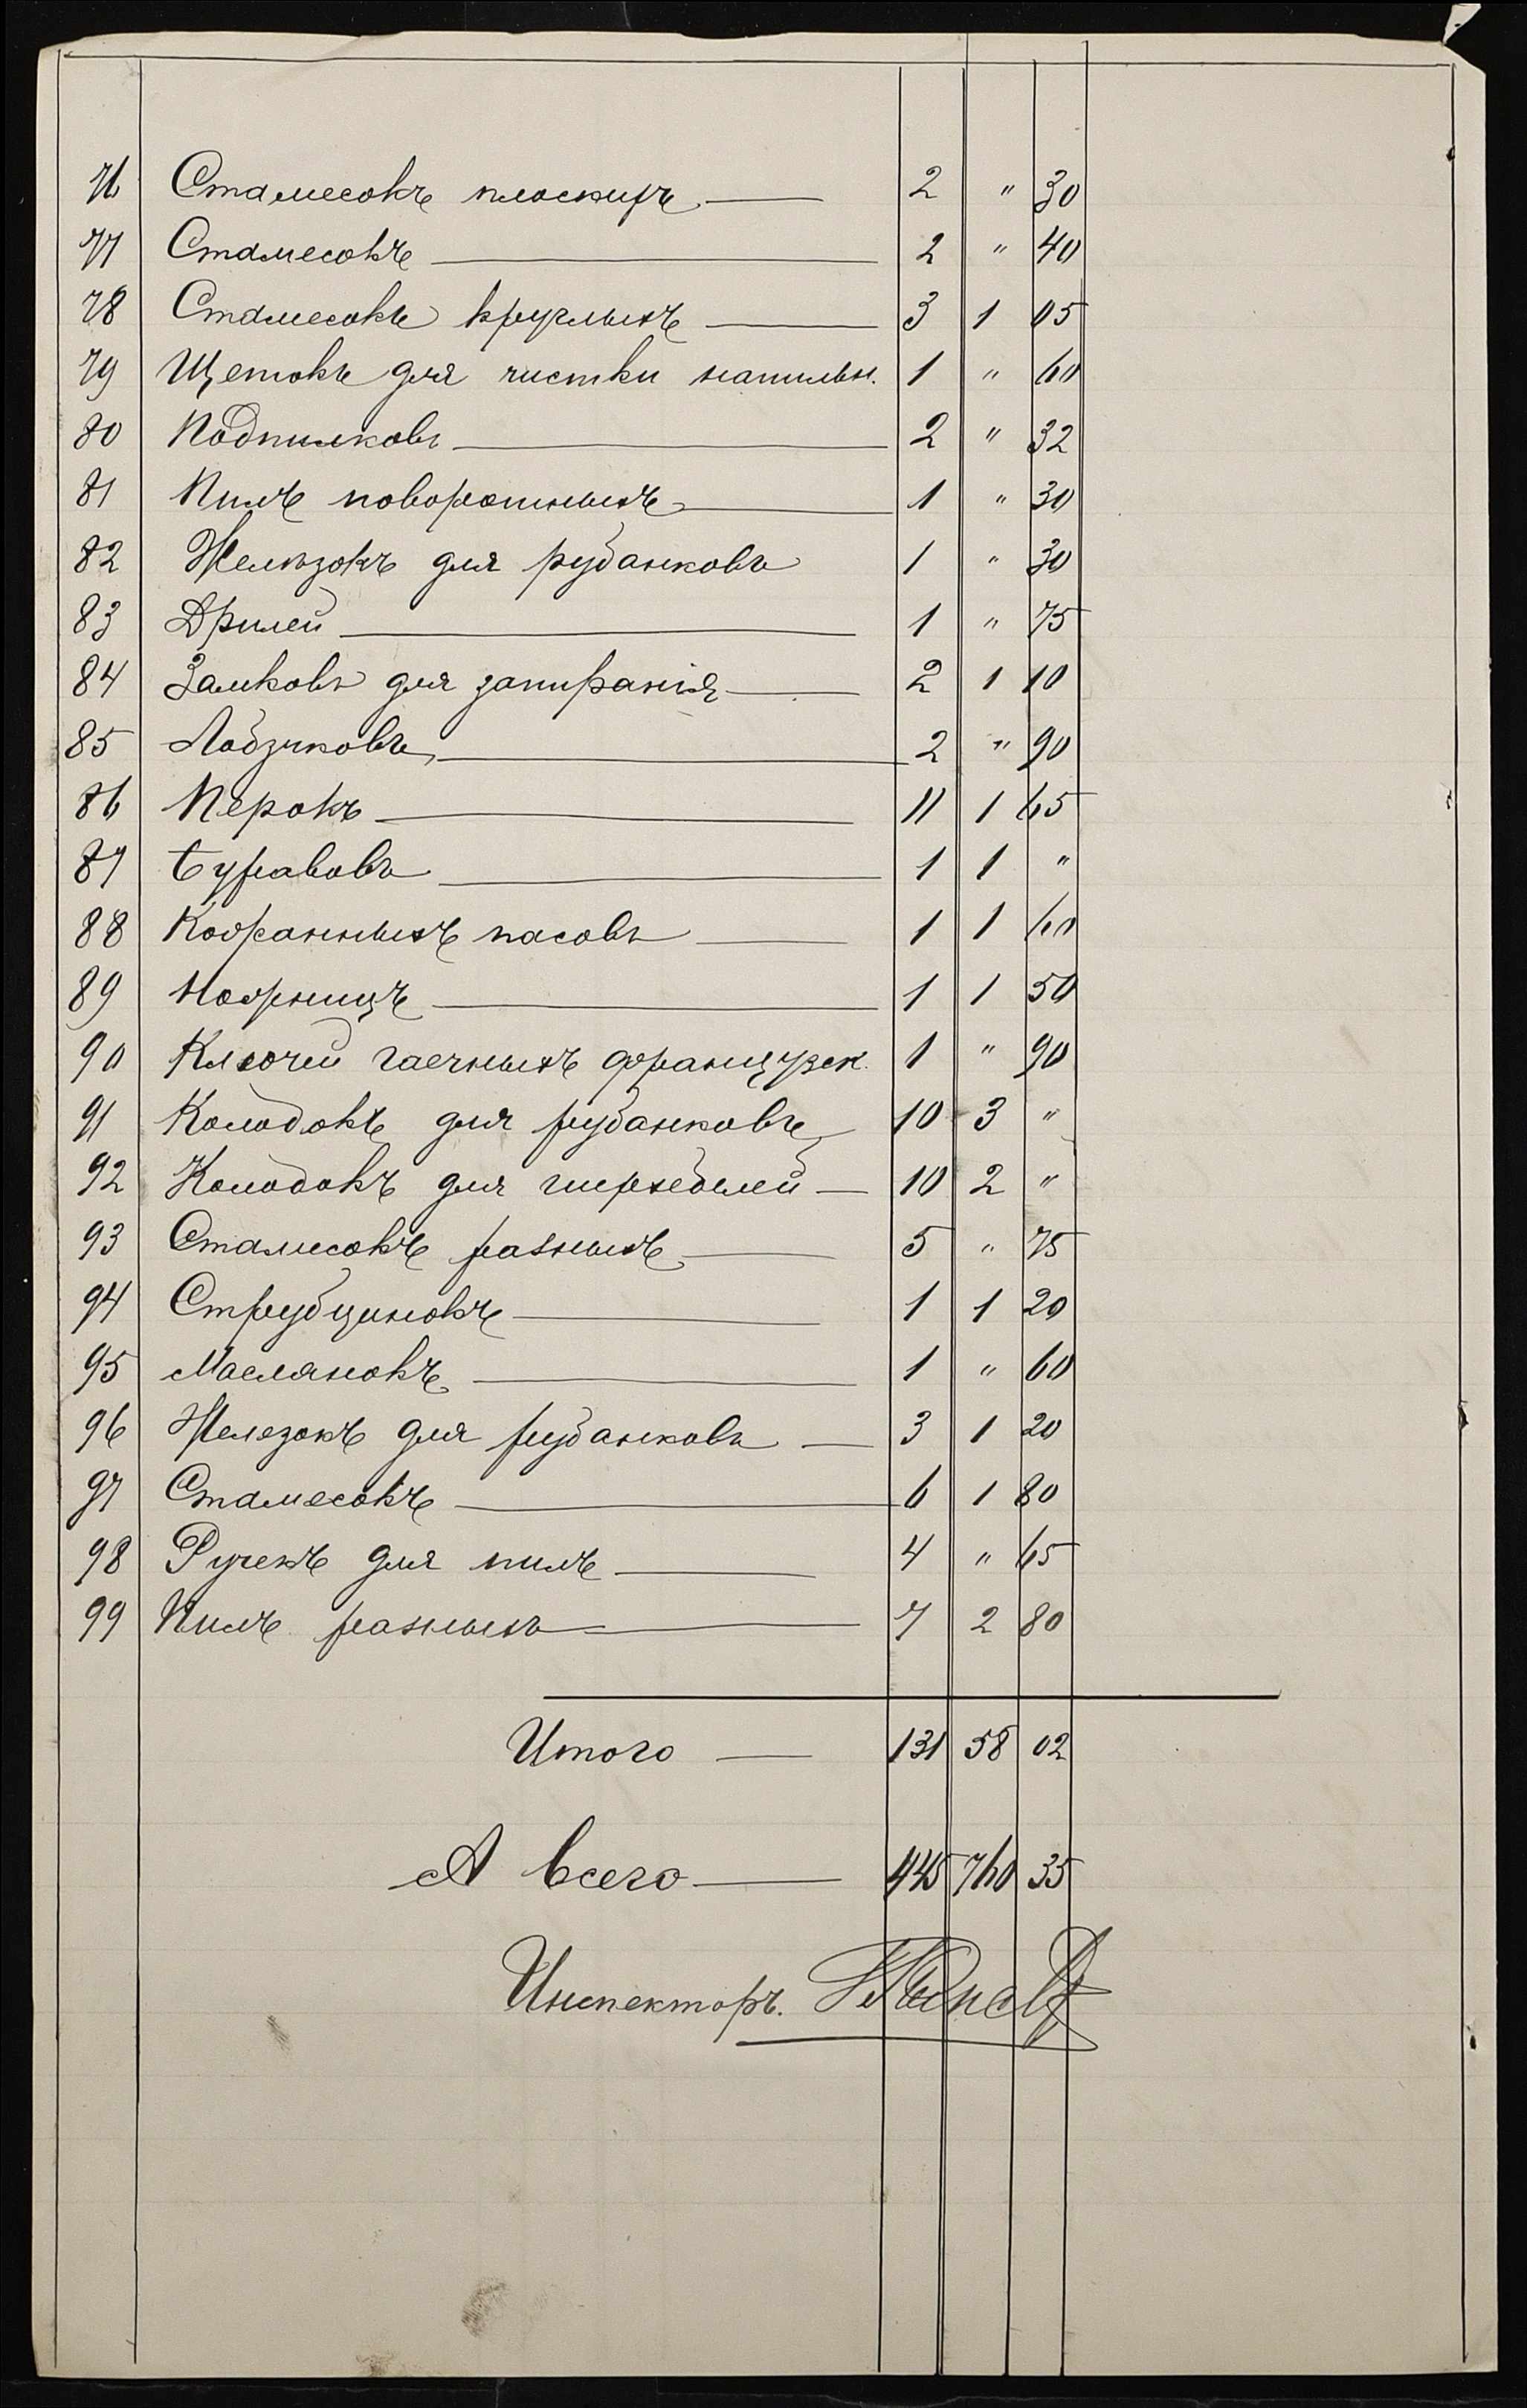 76 Стамесокъ плоскихъ — 2 " 30
77 Стамесокъ — 2 " 40
78 Стамесокъ круглыхъ — 3 1 05
79 Щетокъ для чистки напильн. 1 " 60
80 Подпилковъ — 2 " 32
81 Пилъ поворотныхъ — 1 " 30
82 Желѣзокъ для рубанковъ 1 " 30
83 Дрилей — 1 " 75
84 Замковъ для запиранія — 2 1 10
85 Лобзиковъ — 2 " 90
86 Перокъ — 11 1 65
87 Буравовъ — 1 1 "
88 Кожанныхъ пасовъ — 1 1 60
89 Ножницъ — 1 1 50
90 Ключей гаечныхъ французск. 1 " 90
91 Колодокъ для рубанковъ 10 3 "
92 Колодокъ для шерхебелей — 10 2 "
93 Стамесокъ разныхъ — 5 " 75
94 Струбцинокъ — 1 1 20
95 Маслянокъ — 1 " 60
96 Железокъ для рубанковъ — 3 1 20
97 Стамесокъ — 6 1 80
98 Ручекъ для пилъ — 4 " 65
99 Пилъ разныхъ — 7 2 80
Итого — 131 58 02
А всего — 445 760 35
Инспекторъ.